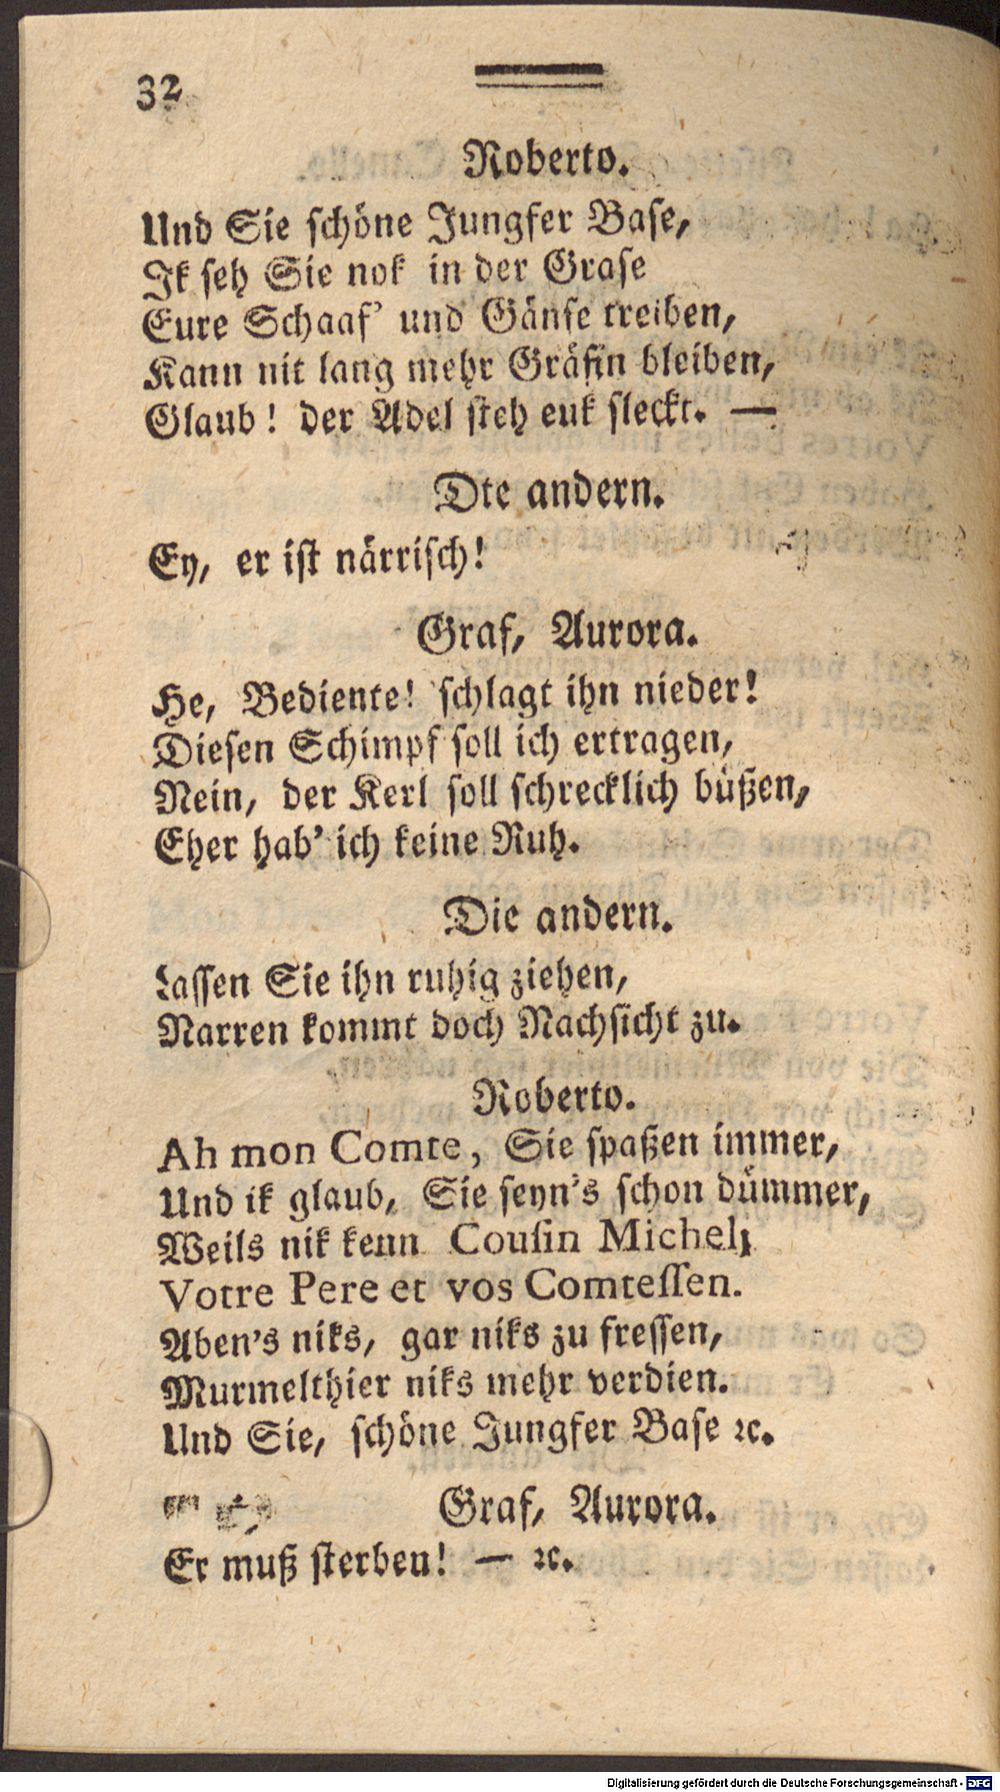 32
Roberto.
Und Sie schöne Jungfer Base,
Ik seh Sie nok in der Grase
Eure Schaaf' und Gänse treiben,
Kann nit lang mehr Gräfin bleiben,
Glaub! der Adel steh euk sleckt. —
Dte andern.
Ey, er ist närrisch!
Graf, Aurora.
He, Bediente! schlagt ihn nieder!
Diesen Schimpf soll ich ertragen,
Nein, der Kerl soll schrecklich büßen,
Eher hab' ich keine Ruh.
Die andern.
Lassen Sie ihn ruhig ziehen,
Narren kommt doch Nachsicht zu.
Roberto.
Ah mon Comte, Sie spaßen immer,
Und ik glaub, Sie seyn's schon dümmer,
Weils nik kenn Cousin Michel;
Votre Pere et vos Comtessen.
Aben's niks, gar niks zu fressen,
Murmelthier niks mehr verdien.
Und Sie, schöne Jungfer Base ꝛc.
Graf, Aurora.
Er muß sterben! — ꝛc.
Digitalisierung gefördert durch die Deutsche Forschungsgemeinschaft - DFG